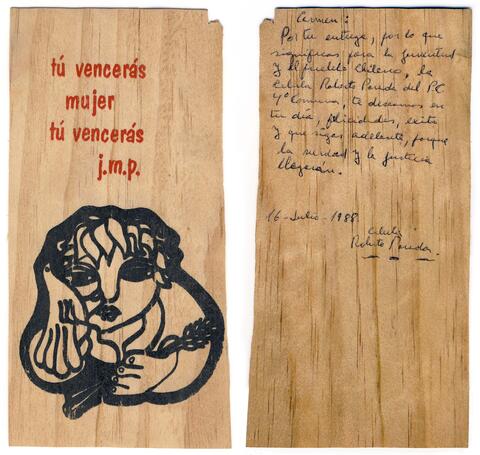 tú vencerás
mujer
tú vencerás
j.m.p.
Carmen:
Por tu entrega, por lo que
significas para la juventud
y el pueblo chileno, la
Celula Roberto Parada del P.C.
4ª Comuna, te deseamos en
tu día, felicidades, exito
y que sigas adelante, porque
la verdad y la justicia
llegarán.
16-Julio-1988
Celula
Roberto Parada.